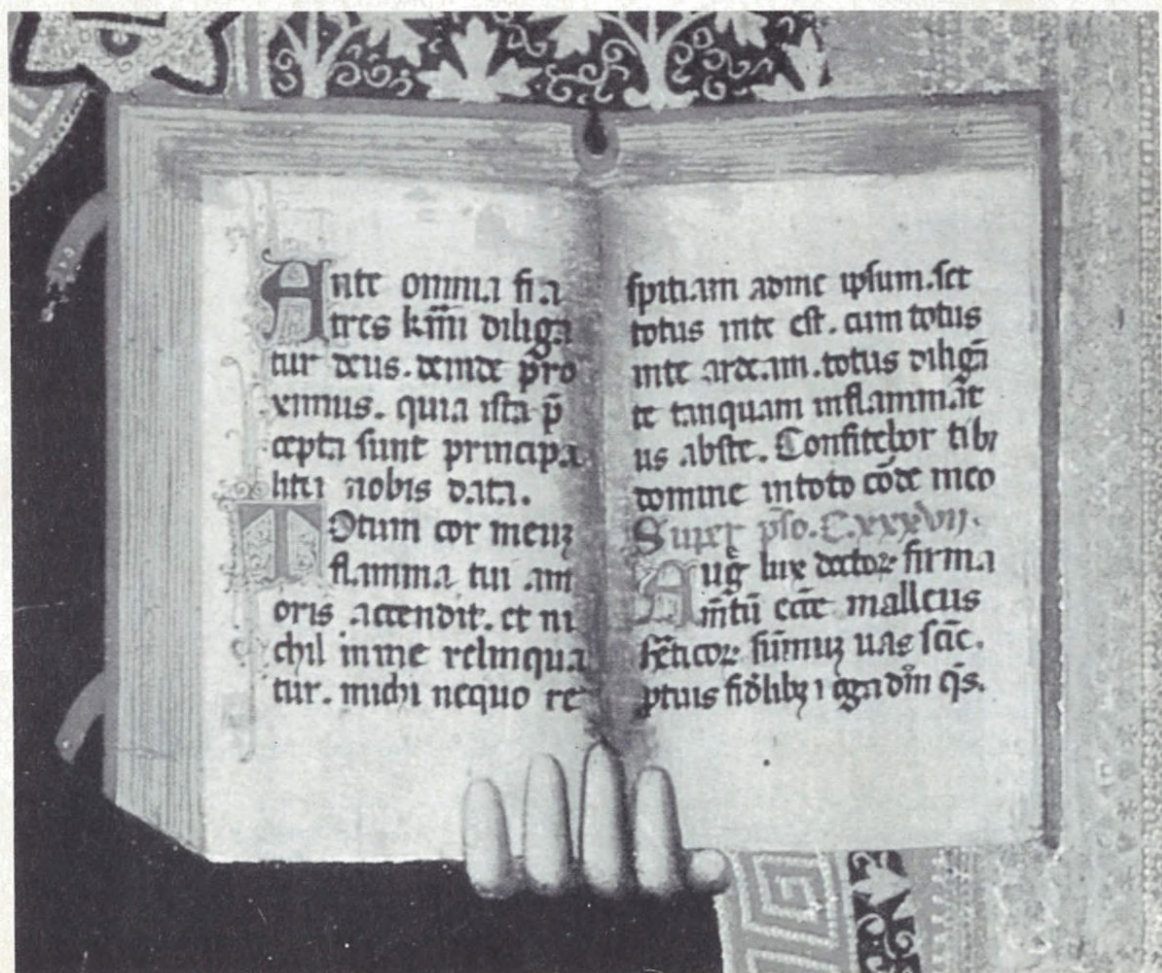 Ante omnia fra
tres kr̄mi diliga
tur deus. deinde pro
ximus. quia ista p̄
cepta sunt principa
liter nobis data.
Totum cor meuꝫ
flamma tui am
oris accendit. et ni
chil in me relinqua
tur. michi nequo re
spitiam adme ipsum. set
totus inte est. cum totus
inte ardeam. totus diligā
te tanquam inflammat̄
us abste. Confitebor tibi
domine intoto cōde meo
Super pſo. C.xxxvii.
Auḡ lux doctoꝝ firma
m̄tū ecc̄e malleus
h̄eticoꝝ sūmuꝫ uas sc̄ie.
fidelibꝫ